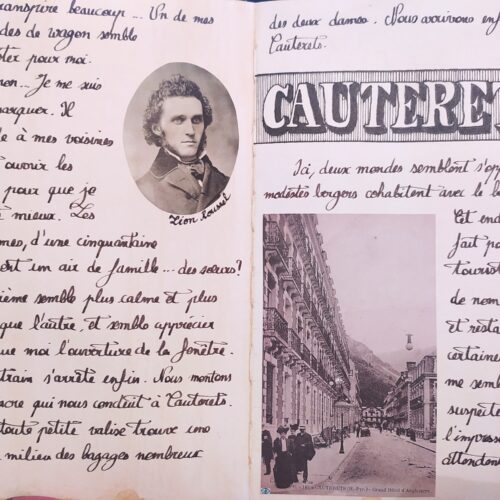 transpire beaucoup ... Un de mes
des de wagon semble
ter pour moi.
non... Je me suis
arquer. Il
e à mes voisines
ouvrir les
pour que je
mieux. Les
mes, d'une cinquantaine
ont un air de famille ... des sœurs?
ième semble plus calme et plus
que l'autre, et semble apprécier
que moi l'ouverture de la fenêtre.
train s'arrête enfin. Nous montons
acre qui nous conduit à Cauterets.
toute petite valise trouve une
milieu des bagages nombreux
Zion Roussel
des deux dames. Nous arrivons enf
Cauterets.
CAUTERET
Ici, deux mondes semblent s'opp
modestes bergers cohabitent avec le b
Cet end
fait pa
tourist
de nom
et resta
certaine
me semb
suspect
l'impress
attendent
CAUTERETS (H.-Pyr.) - Grand Hôtel d'Angleterre